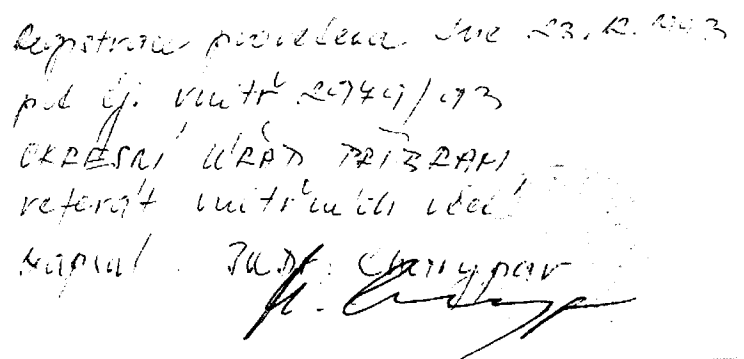 Registrace provedena dne 23. 12. 1993
pod čj. vnitř 2974
OKRESNÍ ÚŘAD PŘÍBRAM
referát vnitřních věcí
Napsal JUDr.